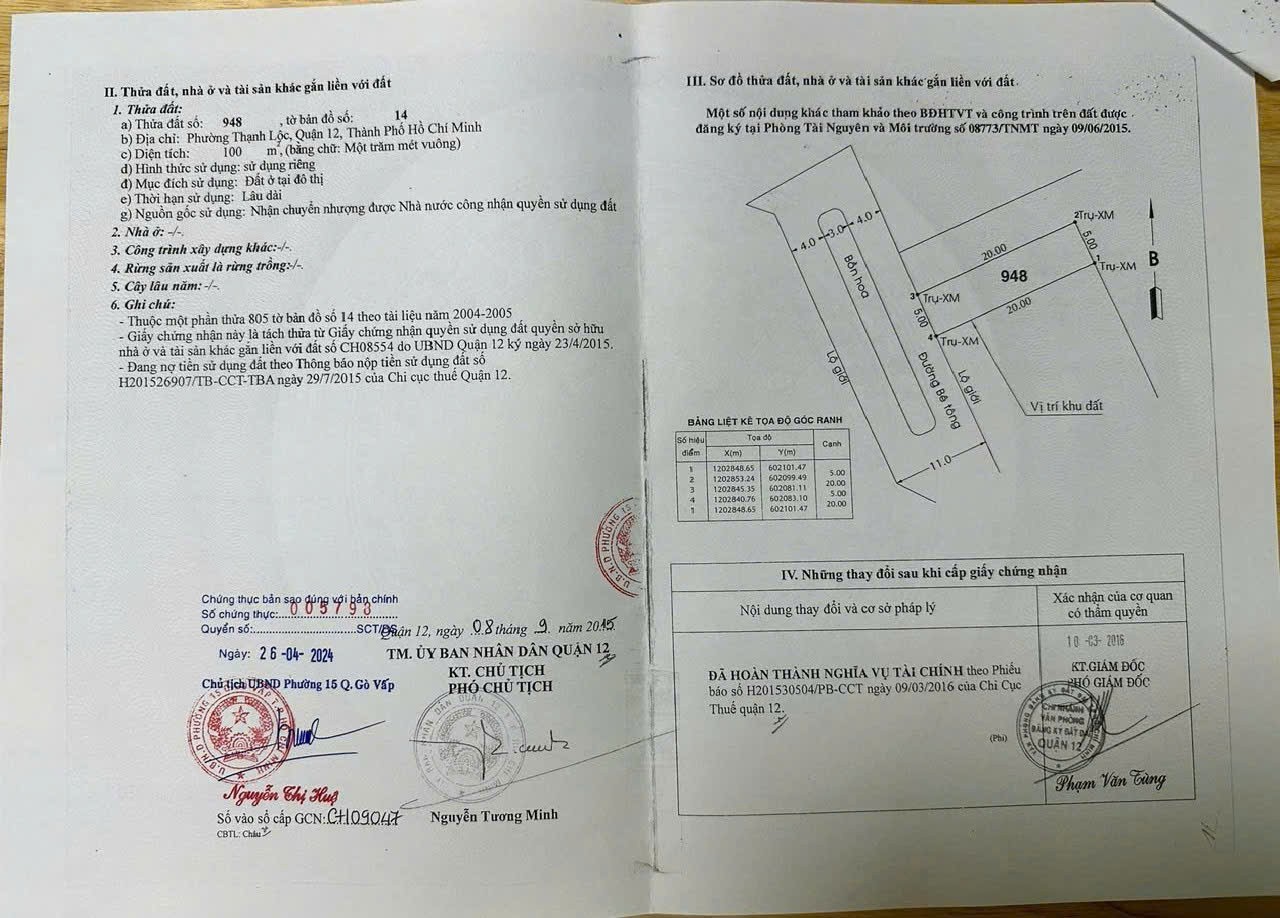 II. Thửa đất, nhà ở và tài sản khác gắn liền với đất
1. Thửa đất:
a) Thửa đất số: 948 , tờ bản đồ số: 14
b) Địa chỉ: Phường Thạnh Lộc, Quận 12, Thành Phố Hồ Chí Minh
c) Diện tích: 100 m², (bằng chữ: Một trăm mét vuông)
d) Hình thức sử dụng: sử dụng riêng
đ) Mục đích sử dụng: Đất ở tại đô thị
e) Thời hạn sử dụng: Lâu dài
g) Nguồn gốc sử dụng: Nhận chuyển nhượng được Nhà nước công nhận quyền sử dụng đất
2. Nhà ở: -/-.
3. Công trình xây dựng khác:-/-.
4. Rừng sản xuất là rừng trồng:-/-.
5. Cây lâu năm: -/-.
6. Ghi chú:
- Thuộc một phần thửa 805 tờ bản đồ số 14 theo tài liệu năm 2004-2005
- Giấy chứng nhận này là tách thửa từ Giấy chứng nhận quyền sử dụng đất quyền sở hữu
nhà ở và tài sản khác gắn liền với đất số CH08554 do UBND Quận 12 ký ngày 23/4/2015.
- Đang nợ tiền sử dụng đất theo Thông báo nộp tiền sử dụng đất số
H201526907/TB-CCT-TBA ngày 29/7/2015 của Chi cục thuế Quận 12.
Chứng thực bản sao đúng với bản chính
Số chứng thực: 005793
Quyển số:..........SCT/BS
Ngày: 26-04-2024
Chủ tịch UBND Phường 15 Q. Gò Vấp
Nguyễn Thị Huệ
Quận 12, ngày 08 tháng 9 năm 2015
TM. ỦY BAN NHÂN DÂN QUẬN 12
KT. CHỦ TỊCH
PHÓ CHỦ TỊCH
Nguyễn Tương Minh
Số vào sổ cấp GCN: CH09047
CBTL: Châu
U.B.N.D PHƯỜNG 15
III. Sơ đồ thửa đất, nhà ở và tài sản khác gắn liền với đất.
Một số nội dung khác tham khảo theo BĐHTVT và công trình trên đất được
đăng ký tại Phòng Tài Nguyên và Môi trường số 08773/TNMT ngày 09/06/2015.
4.0
3.0
4.0
Bồn hoa
Lộ giới
Đường Bê tông
Lộ giới
11.0
20.00
948
20.00
5.00
5.00
2 Trụ-XM
1 Trụ-XM
3 Trụ-XM
4 Trụ-XM
B
Vị trí khu đất
BẢNG LIỆT KÊ TỌA ĐỘ GÓC RANH
Số hiệu điểm Tọa độ Cạnh
X(m) Y(m)
1 1202848.65 602101.47
5.00
2 1202853.24 602099.49
20.00
3 1202845.35 602081.11
5.00
4 1202840.76 602083.10
20.00
1 1202848.65 602101.47
IV. Những thay đổi sau khi cấp giấy chứng nhận
Nội dung thay đổi và cơ sở pháp lý
Xác nhận của cơ quan
có thẩm quyền
ĐÃ HOÀN THÀNH NGHĨA VỤ TÀI CHÍNH theo Phiếu
báo số H201530504/PB-CCT ngày 09/03/2016 của Chi Cục
Thuế quận 12.
(Phi)
10 -C3- 2016
KT.GIÁM ĐỐC
PHÓ GIÁM ĐỐC
CHI NHÁNH
VĂN PHÒNG
ĐĂNG KÝ ĐẤT ĐAI
QUẬN 12
Phạm Văn Tùng